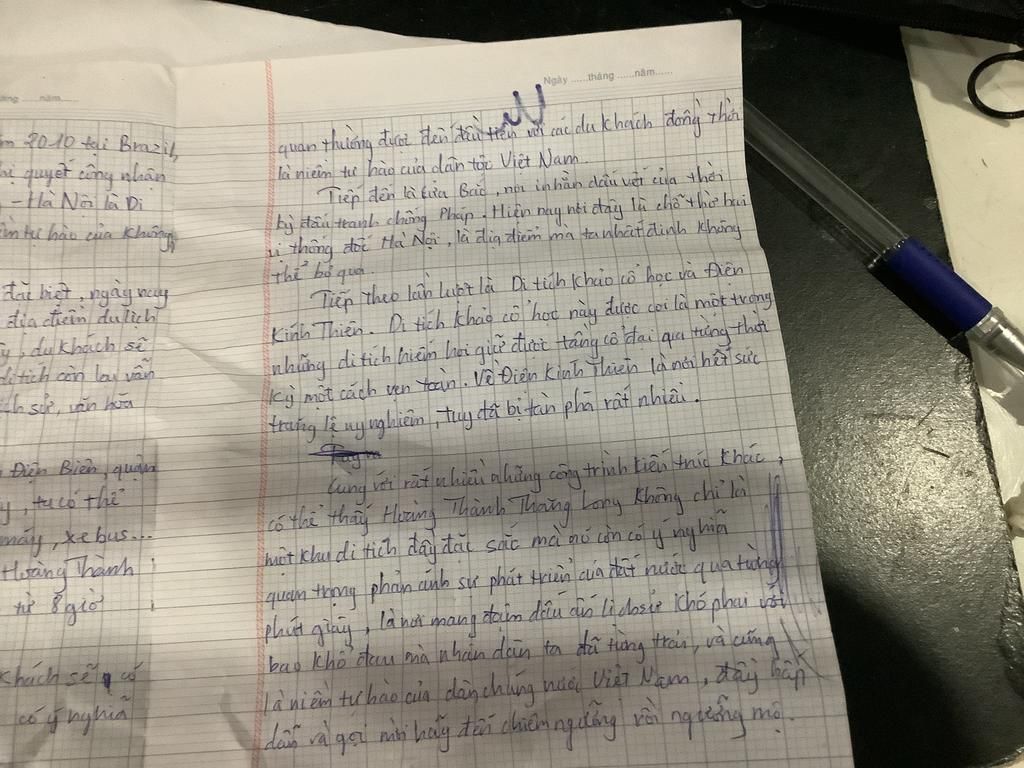 năm......
m 2010 tại Brazil,
hị quyết công nhận
- Hà Nội là Di
iềm tự hào của không
đặc biệt, ngày nay
địa điểm du lịch
y, du khách sẽ
di tích còn lại vẫn
ịch sử, văn hóa
Điện Biên, quận
y, ta có thể
máy, xe bus...
Hoàng Thành
từ 8 giờ
khách sẽ có
có ý nghĩa
Ngày ......tháng ......năm......
quan thường được đến đầu tiên với các du khách đồng thời
là niềm tự hào của dân tộc Việt Nam.
Tiếp đến là Cửa Bắc, nơi in hằn dấu vết của thời
kỳ đấu tranh chống Pháp. Hiện nay nơi đây là chỗ thờ hai
vị thống đốc Hà Nội, là địa điểm mà ta nhất định không
thể bỏ qua.
Tiếp theo lần lượt là Di tích khảo cổ học và Điện
Kính Thiên. Di tích khảo cổ học này được coi là một trong
những di tích hiếm hoi giữ được tầng cổ đại qua từng thời
kỳ một cách vẹn toàn. Về Điện Kính Thiên là nơi hết sức
tráng lệ uy nghiêm, tuy đã bị tàn phá rất nhiều.
Cùng với rất nhiều những công trình kiến trúc khác,
có thể thấy Hoàng Thành Thăng Long không chỉ là
một khu di tích đầy đặc sắc mà nó còn có ý nghĩa
quan trọng phản ánh sự phát triển của đất nước qua từng
phút giây, là nơi mang đậm dấu ấn lịch sử khó phai với
bao khổ đau mà nhân dân ta đã từng trải, và cũng
là niềm tự hào của dân chúng nước Việt Nam, đầy hấp
dẫn và gợi mời hãy đến chiêm ngưỡng rồi ngưỡng mộ.